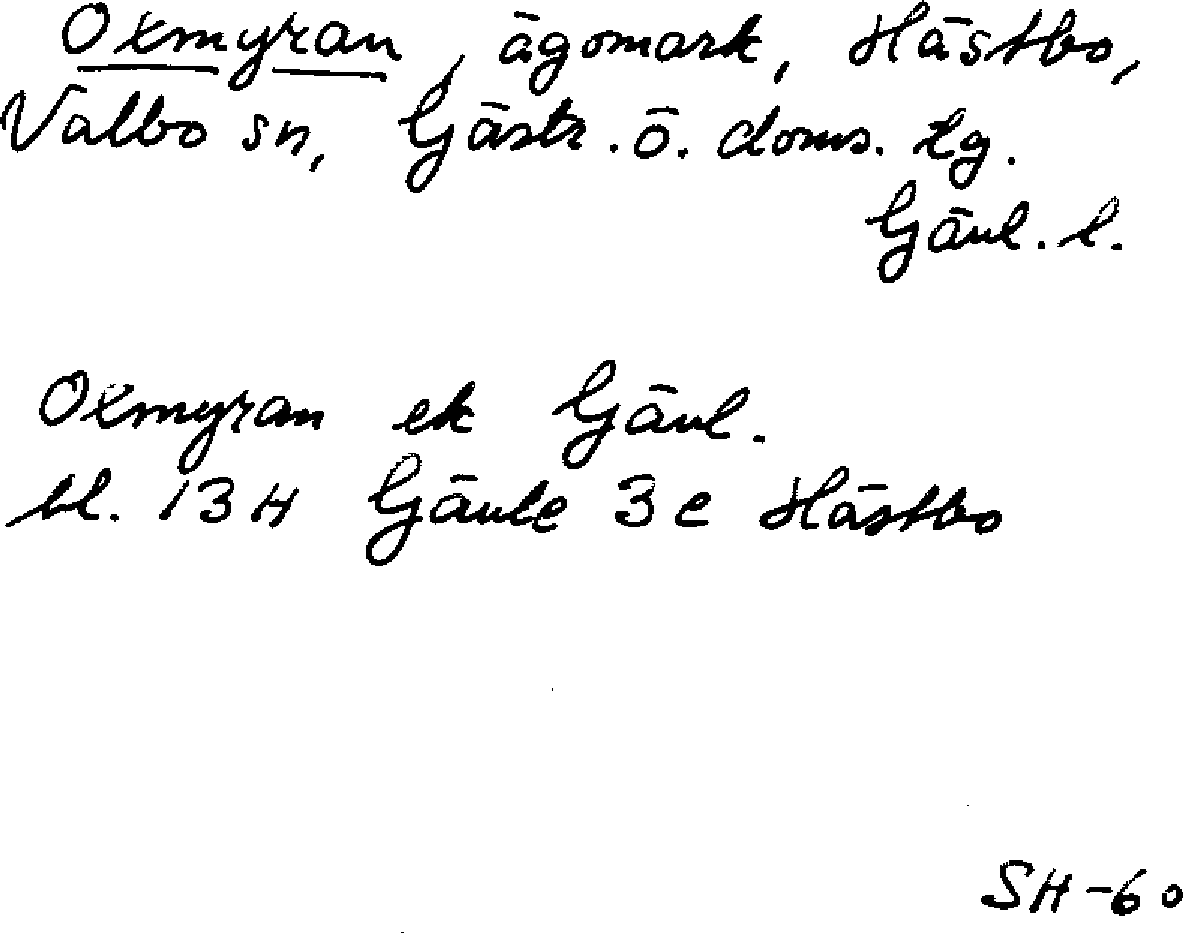 Oxmyran, ägomark, Hästbo,
Valbo sn, Gästr. ö. doms. tg.
Gävl. l.
Oxmyran ek Gävl.
bl. 13H Gävle 3c Hästbo
SH-60